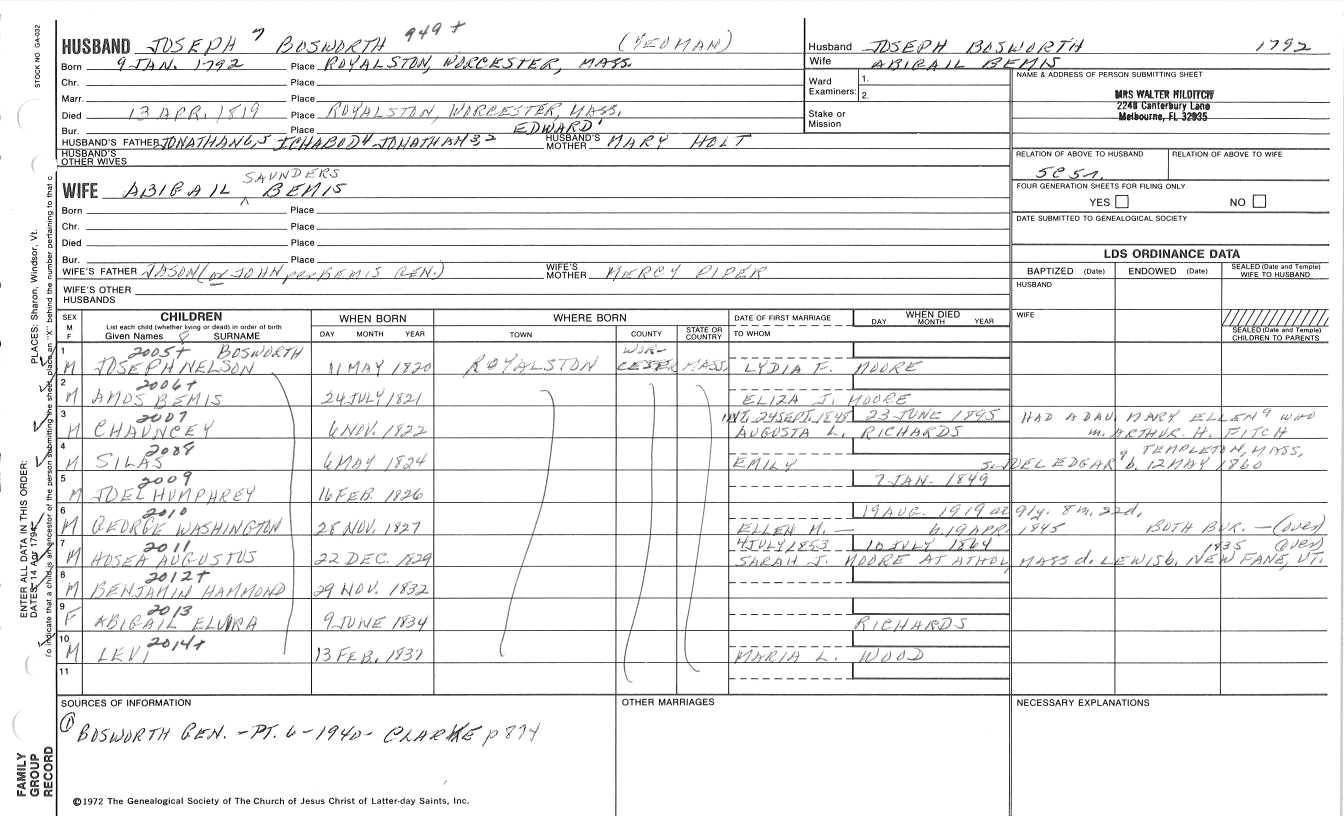 STOCK NO. GA-032
HUSBAND JOSEPH 7 BOSWORTH 949+ (YEOMAN)
Born 9 JAN. 1792 Place ROYALSTON, WORCESTER, MASS.
Chr. Place
Marr. Place
Died 13 APR. 1819 Place ROYALSTON, WORCESTER, MASS.
Bur. Place
HUSBAND'S FATHER JONATHAN 6,5 ICHABOD 4 JONATHAN 3,2 EDWARD 1 HUSBAND'S MOTHER MARY HOLT
HUSBAND'S OTHER WIVES
Husband JOSEPH BOSWORTH 1792
Wife ABIGAIL BEMIS
Ward 1.
Examiners: 2.
Stake or Mission
NAME & ADDRESS OF PERSON SUBMITTING SHEET
MRS WALTER HILDITCH
2248 Canterbury Lane
Melbourne, FL 32935
RELATION OF ABOVE TO HUSBAND RELATION OF ABOVE TO WIFE
5C5r.
FOUR GENERATION SHEETS FOR FILING ONLY
YES NO
DATE SUBMITTED TO GENEALOGICAL SOCIETY
WIFE ABIGAIL SAUNDERS BEMIS
Born Place
Chr. Place
Died Place
Bur. Place
WIFE'S FATHER JASON (or JOHN per BEMIS GEN.) WIFE'S MOTHER MERCY PIPER
WIFE'S OTHER HUSBANDS
LDS ORDINANCE DATA
BAPTIZED (Date) ENDOWED (Date) SEALED (Date and Temple) WIFE TO HUSBAND
HUSBAND
WIFE
SEALED (Date and Temple) CHILDREN TO PARENTS
SEX M F CHILDREN WHEN BORN WHERE BORN DATE OF FIRST MARRIAGE WHEN DIED
List each child (whether living or dead) in order of birth
Given Names 8 SURNAME DAY MONTH YEAR TOWN COUNTY STATE OR COUNTRY TO WHOM DAY MONTH YEAR
1 M 2005+ JOSEPH NELSON BOSWORTH 11 MAY 1820 ROYALSTON WORCESTER MASS. LYDIA F. MOORE
2 M 2006+ AMOS BEMIS 24 JULY 1821 ELIZA J. MOORE
3 M 2007 CHAUNCEY 6 NOV. 1822 INT. 24 SEPT. 1845 23 JUNE 1895 AUGUSTA L. RICHARDS HAD A DAU. MARY ELLEN 9 WHO m. ARTHUR. H. FITCH
4 M 2008 SILAS 6 MAY 1824 EMILY S. JOEL EDGAR 9 b. 12 MAY 1860 TEMPLETON, MASS,
5 M 2009 JOEL HUMPHREY 16 FEB. 1826 7 JAN. 1849
6 M 2010 GEORGE WASHINGTON 28 NOV. 1827 19 AUG. 1919 at 91y. 8m. 22d. ELLEN M. — b. 19 APR. 1845 BOTH BUR. — (over)
7 M 2011 HOSEA AUGUSTUS 22 DEC. 1829 4 JULY 1853 10 JULY 1864 SARAH J. MOORE AT ATHOL, MASS d. LEWIS b. NEW FANE, VT. 1835 (over)
8 M 2012+ BENJAMIN HAMMOND 29 NOV. 1832
9 F 2013 ABIGAIL ELVIRA 9 JUNE 1834 RICHARDS
10 M 2014+ LEVI 13 FEB. 1837 MARIA L. WOOD
11
SOURCES OF INFORMATION OTHER MARRIAGES NECESSARY EXPLANATIONS
① BOSWORTH GEN. - PT. 6 - 1940 - CLARKE p 874
©1972 The Genealogical Society of The Church of Jesus Christ of Latter-day Saints, Inc.
FAMILY GROUP RECORD
ENTER ALL DATA IN THIS ORDER:
DATES: 14 Apr 1794
PLACES: Sharon, Windsor, Vt.